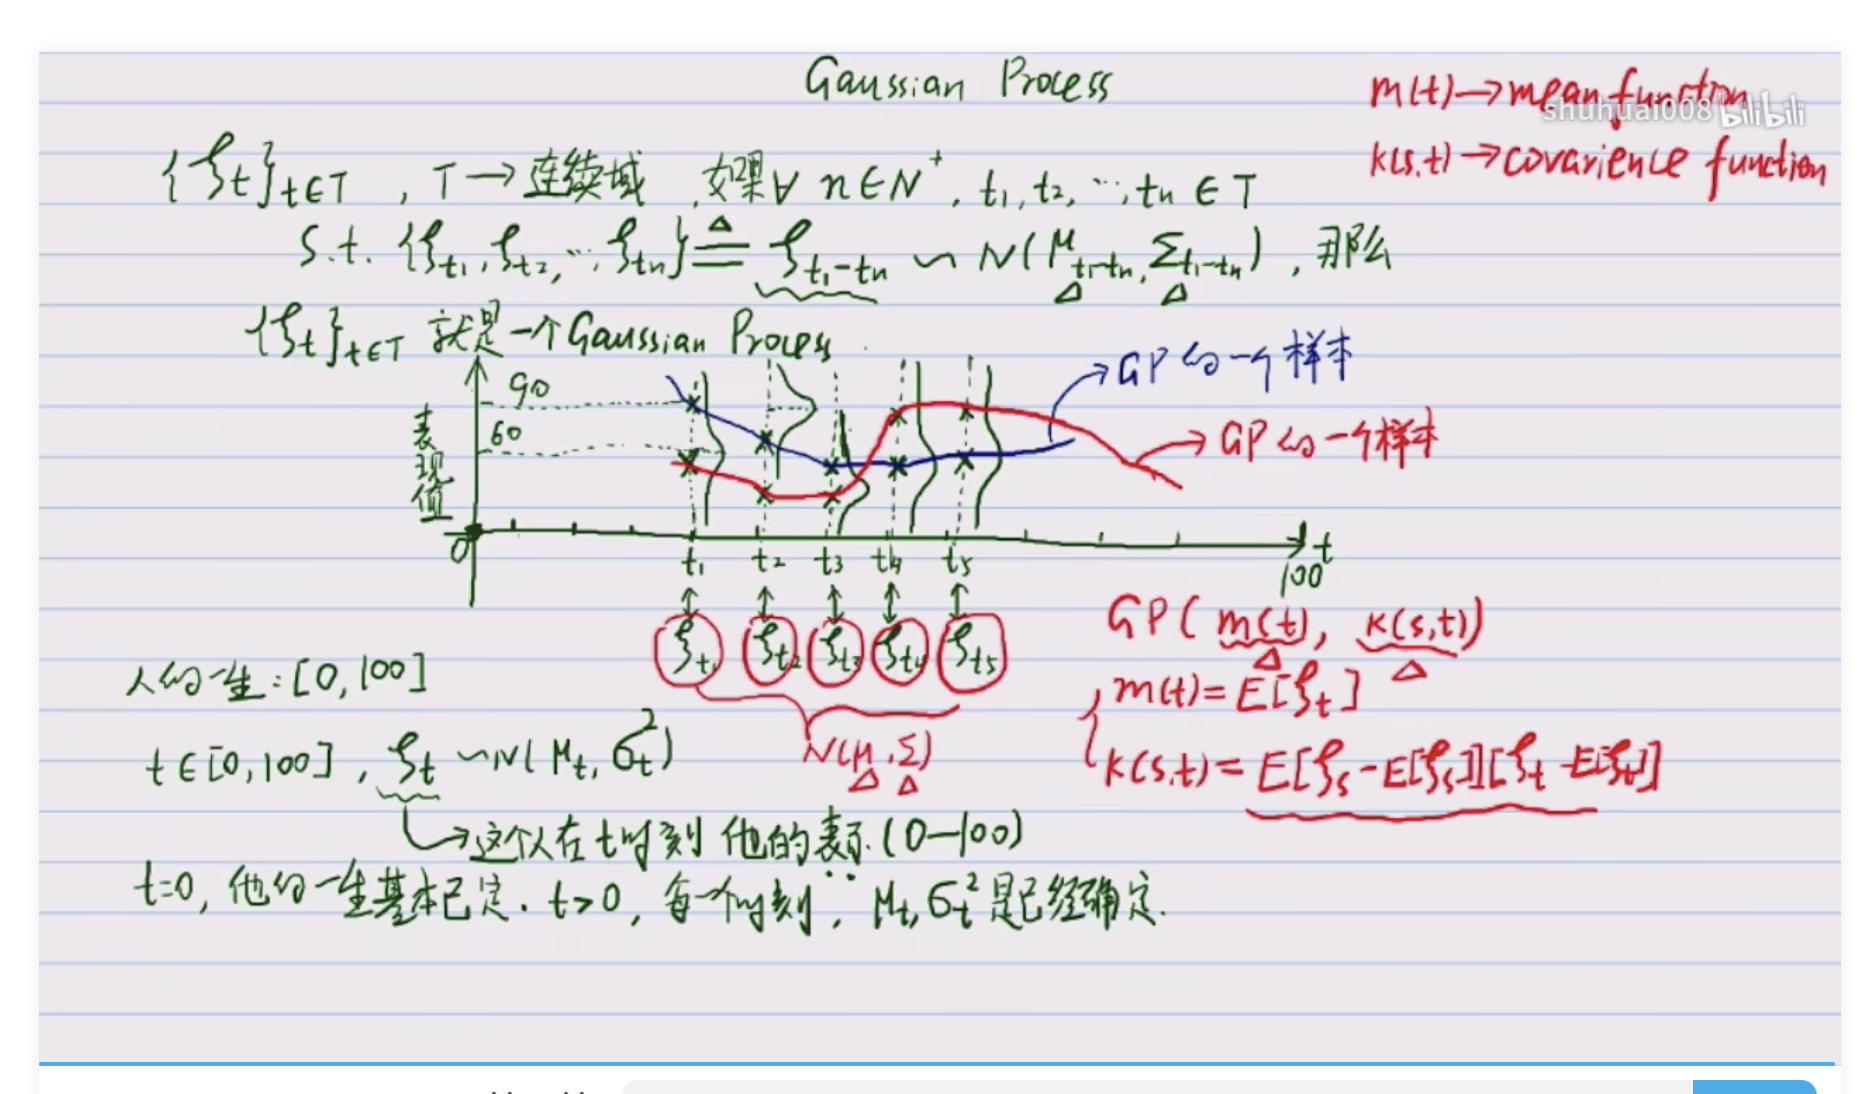 Gaussian Process
m(t)→mean function
shuhuai008 bilibili
k(s,t)→covarience function
{ξt}t∈T , T→连续域 , 如果∀ n∈N⁺, t₁,t₂,…,tn∈T
s.t. {ξt₁,ξt₂,…,ξtn}≜ξt₁-tn ~ N(μt₁-tn,Σt₁-tn) , 那么
{ξt}t∈T 就是一个Gaussian Process.
GP的一个样本
GP的一个样本
表现值
90
60
0
t₁ t₂ t₃ t₄ t₅
t
100
ξt₁ ξt₂ ξt₃ ξt₄ ξt₅
N(μ,Σ)
GP(m(t), k(s,t))
m(t)=E[ξt]
k(s,t)=E[ξs-E[ξs]][ξt-E[ξt]]
人的一生:[0,100]
t∈[0,100], ξt~N(μt,σt²)
→这个人在t时刻 他的表示.(0—100)
t=0, 他的一生基本已定. t>0, 每一个时刻, μt,σt²是已经确定.